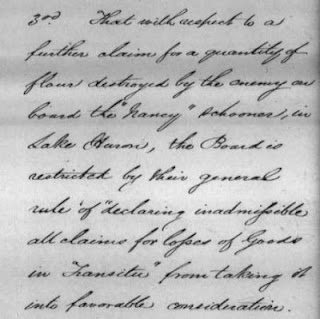 3rd That with respect to a
further claim for a quantity of
flour destroyed by the enemy on
board the "Nancy" schooner, in
Lake Huron, the Board is
restricted by their general
rule of "declaring inadmissible
all claims for losses of Goods
in Transitu" from taking it
into favorable consideration.